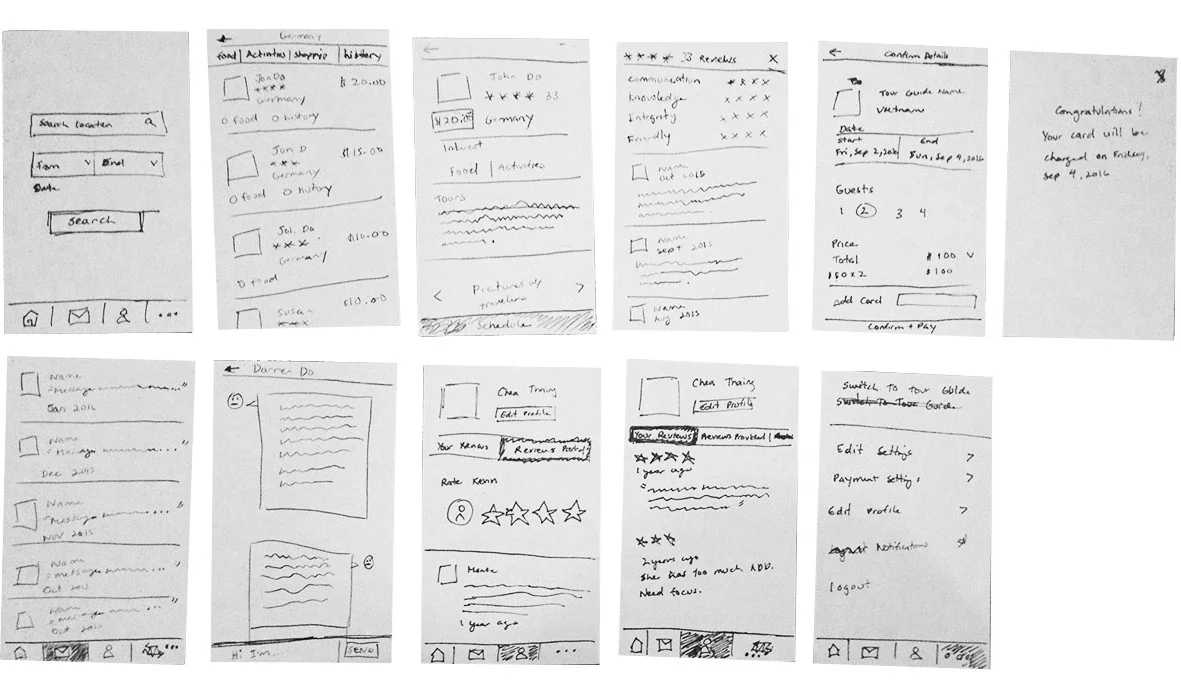 Search Location
from
End
Date
Search
...
Germany
Food | Activities | Shoppin | history
Jon Do
$20.00
****
Germany
0 food 0 history
Jon D
$15.00
***
Germany
0 food 0 history
Jon Do
$10.00
***
Germany
0 food
Susan
$10.00
***
John Do
**** 33
$20.00
Germany
Interest
Food | Activities
Tours
< Pictures w/ >
travelers
Schedule
**** 33 Reviews X
Communication ****
Knowledge xxxx
Integrity xxxx
Friendly xxxx
Name
Oct 2015
Name
Sept 2015
Name
Aug 2015
Confirm Details
Tour Guide Name
Vietnam
Date
Start End
Fri, Sep 2, 2016 Sun, Sep 4, 2016
Guests
1 2 3 4
Price
Total $100 v
$50 x 2 $100
Add Card
Confirm + Pay
X
Congratulations!
Your card will be
charged on Friday,
Sep 4, 2016
Name
"Message ..."
Jan 2016
Name
"Message ..."
Dec 2015
Name
"Message ..."
Nov 2015
Name
"message ..."
Oct 2015
Name
"message ..."
Oct 2015
...
Darren Do
Hi I'm...
SEND
Chea Traing
Edit Profile
Your Reviews
Rate Kevin
1 year ago
...
Chea Traing
Edit Profile
Your Reviews | Reviews Provided |
1 year ago
2 years ago
She has too much ADD.
Need focus.
Switch To Tour Guide
Switch To Tour Guide
Edit Settings >
Payment Settings >
Edit Profile >
Notifications
Logout